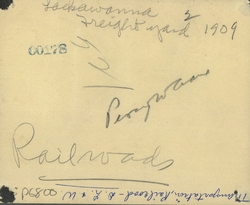 Lackawanna
Freight yard 2 1909
00178
Railroads
Transportation, Railroad - D. L. & W
P6800